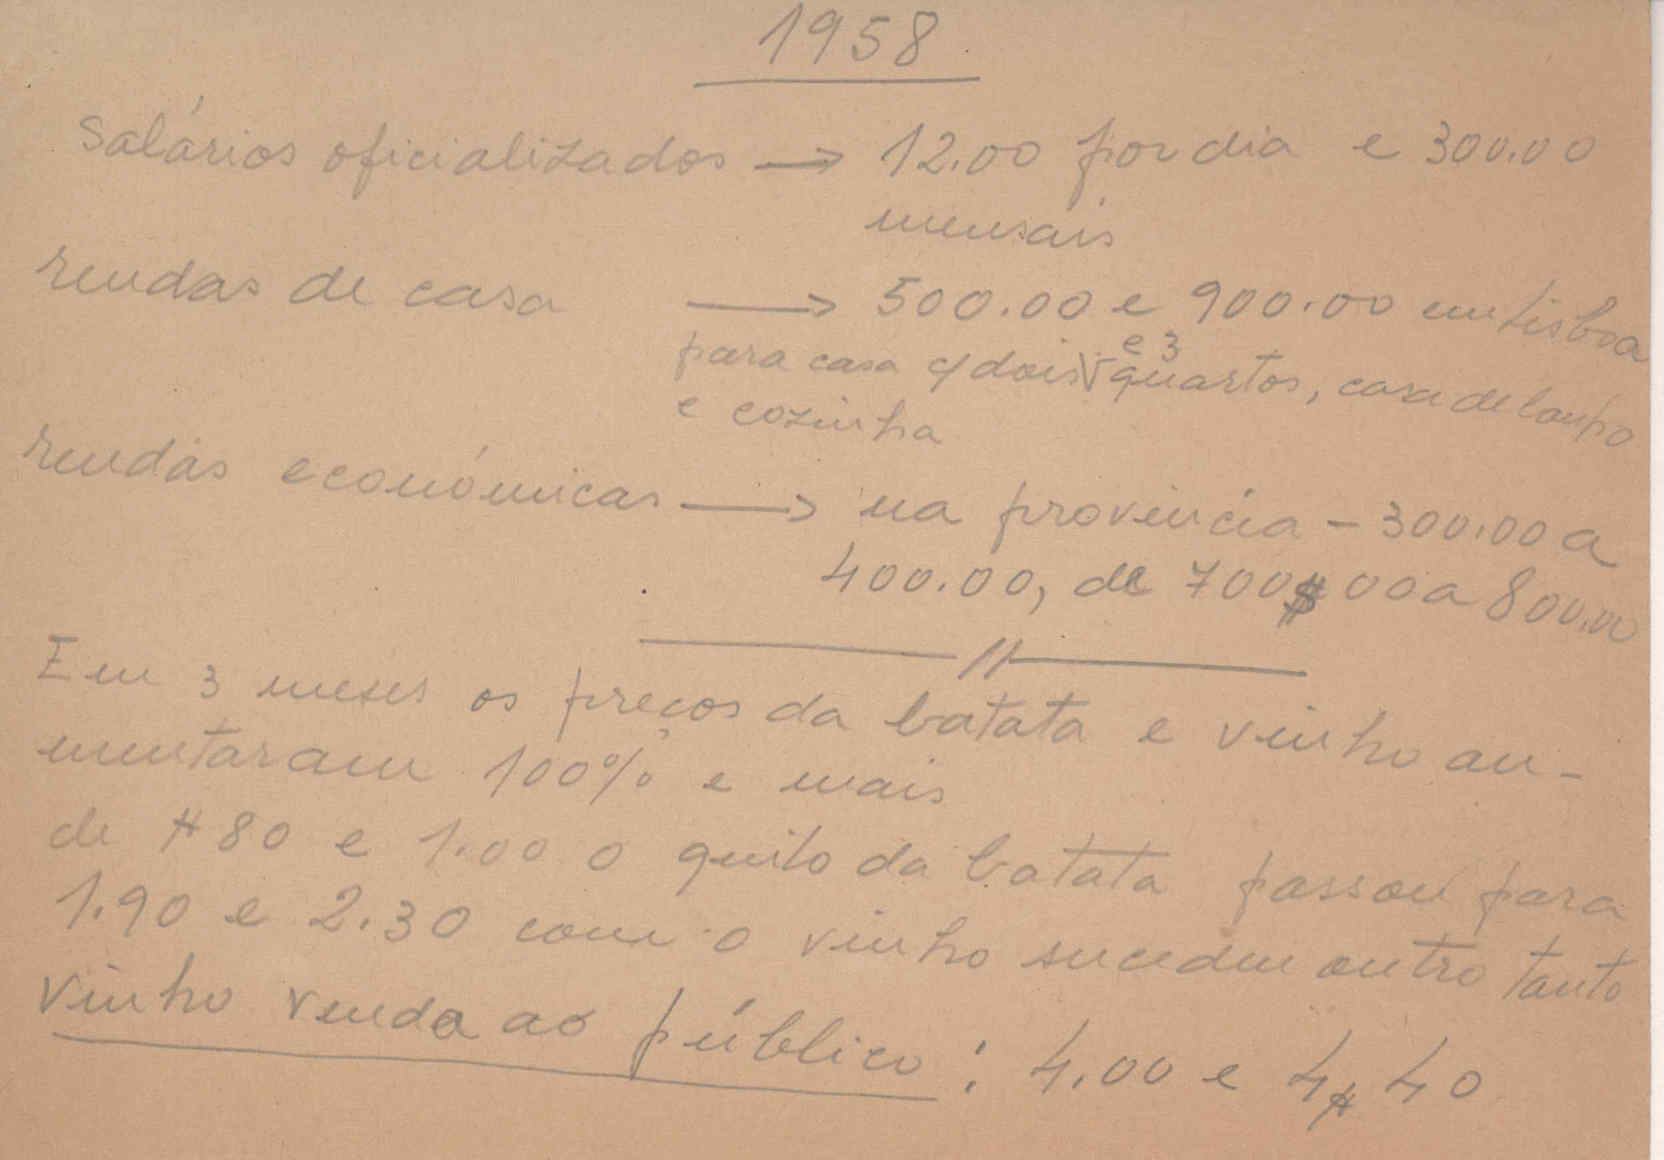 1958
Salários oficializados → 12.00 por dia e 300.00
mensais
rendas de casa → 500.00 e 900.00 em Lisboa
para casa c/ dois e 3 quartos, casa de banho
e cozinha
rendas económicas → na província – 300.00 a
400.00, de 700$00 a 800.00
Em 3 meses os preços da batata e vinho au-
mentaram 100% e mais
de $80 e 1.00 o quilo da batata passou para
1.90 e 2.30 com o vinho sucedeu outro tanto
vinho venda ao público: 4.00 e 4$40